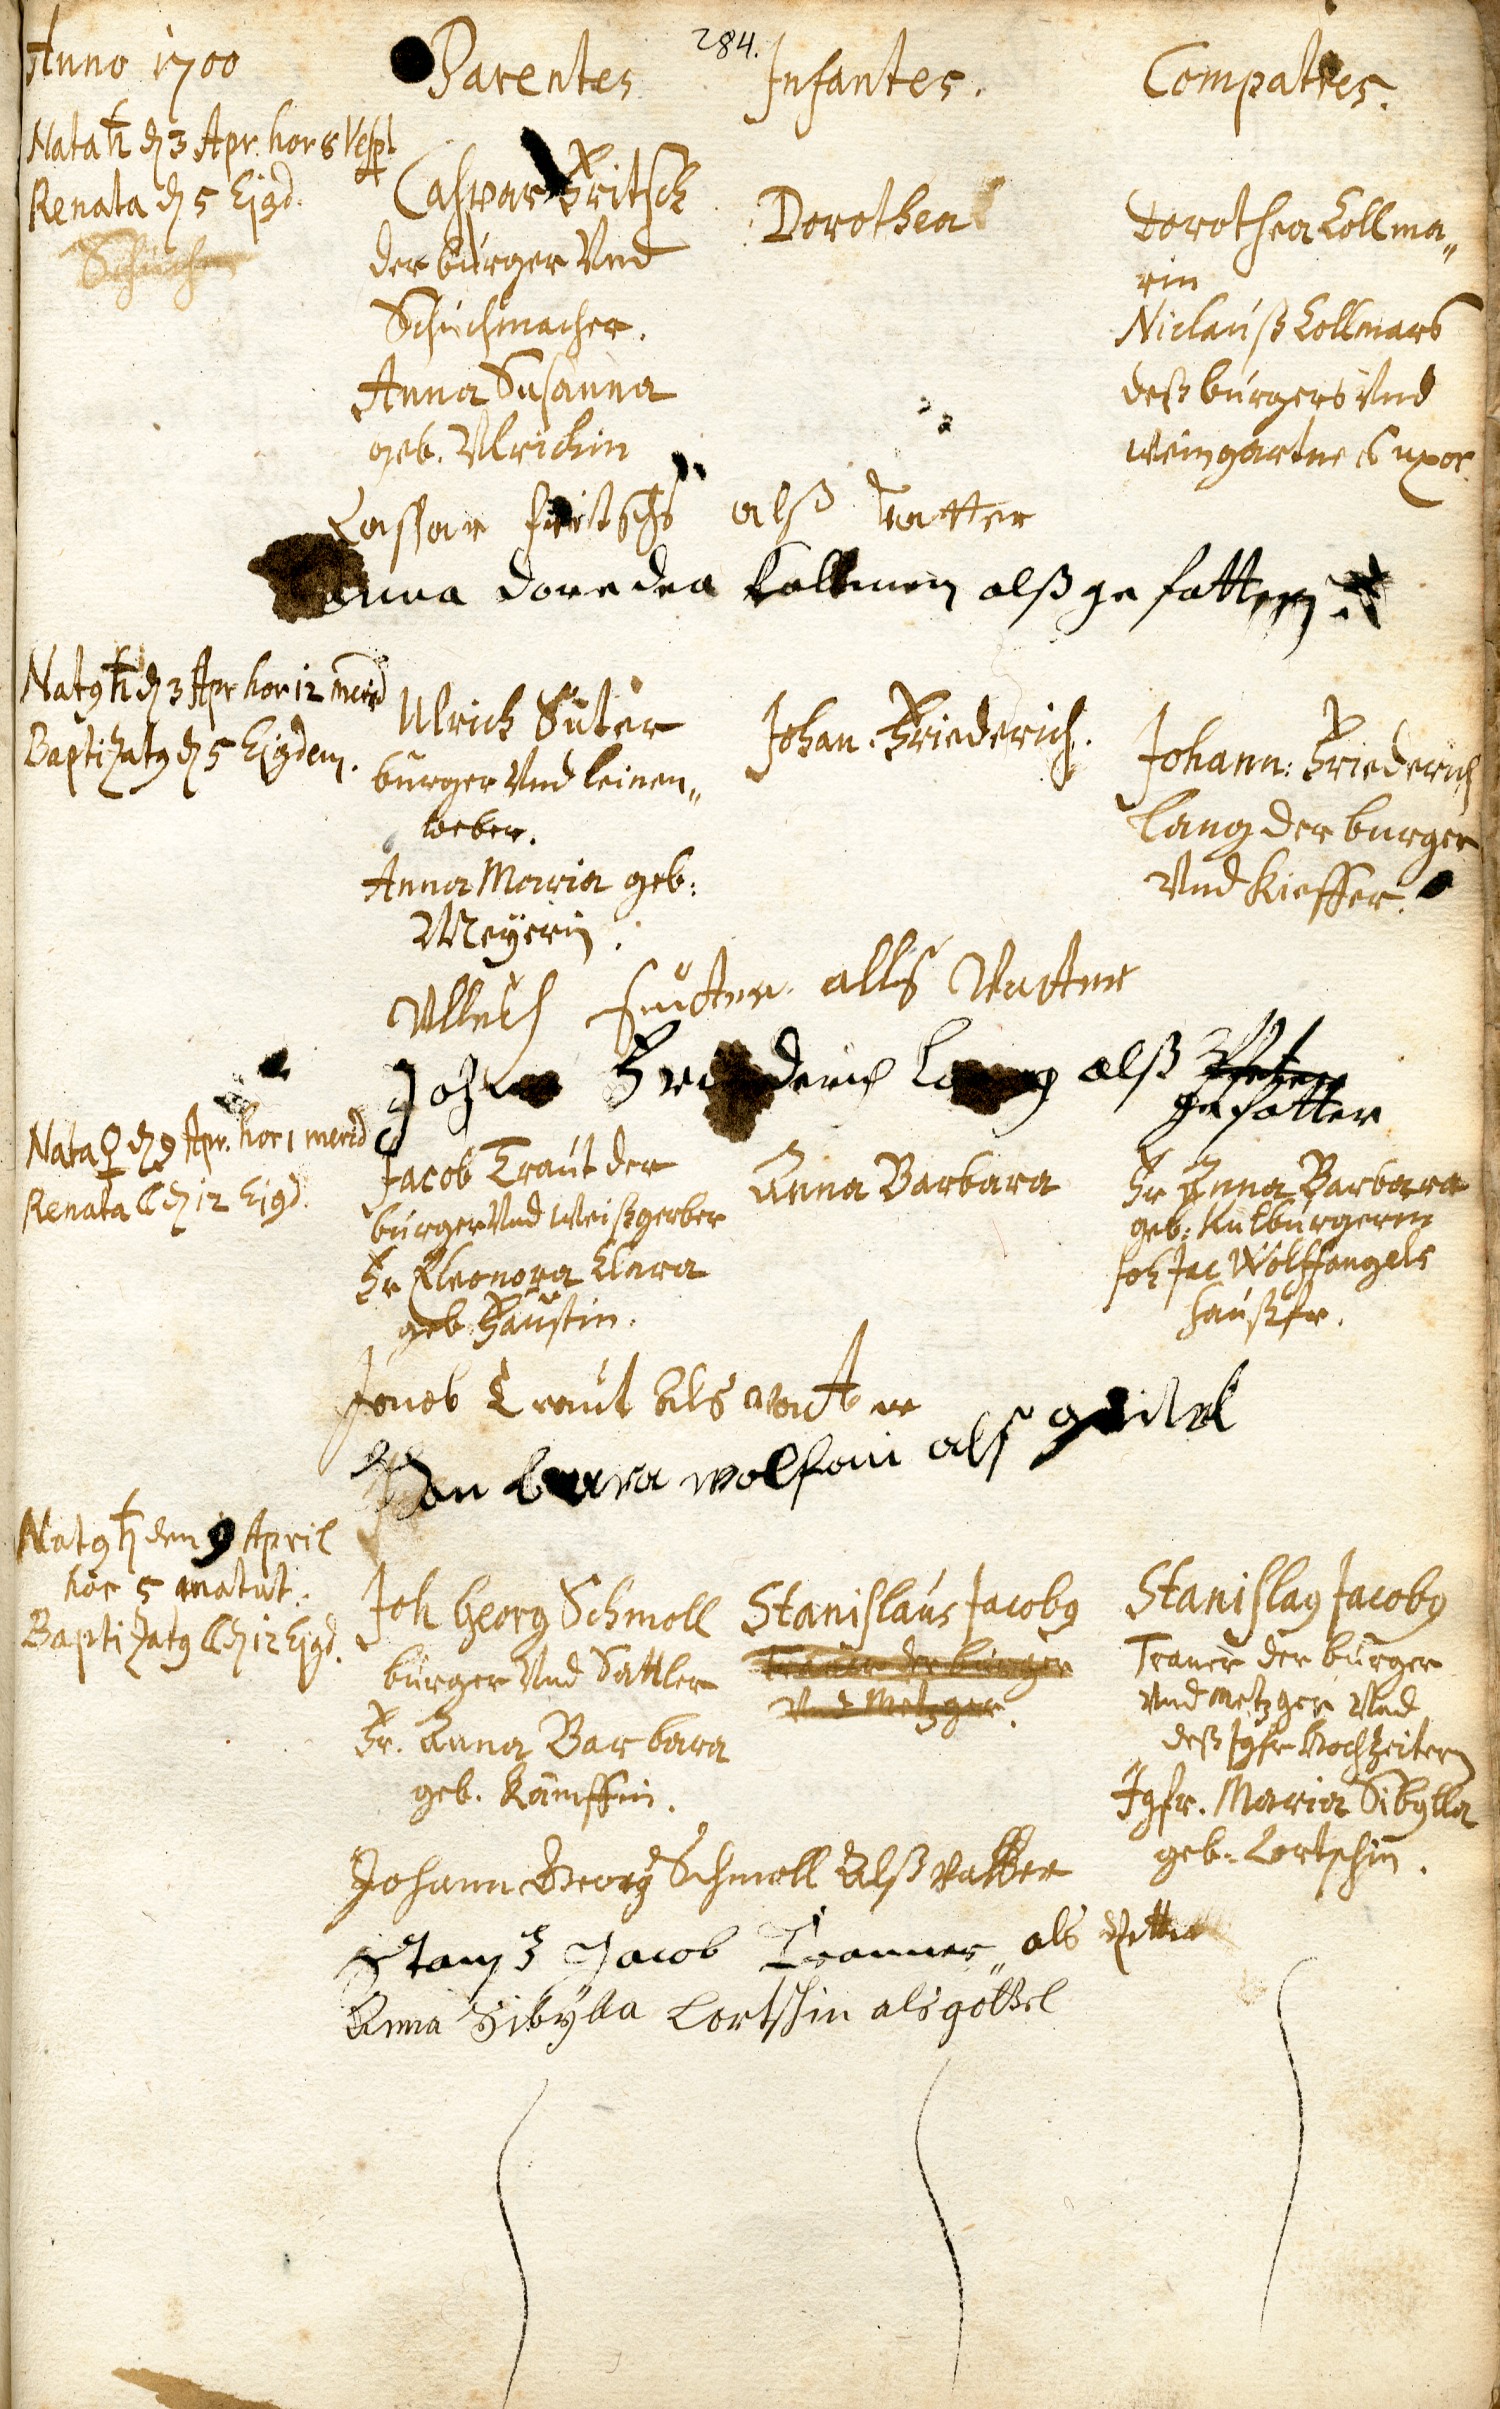 284.
Anno 1700
Parentes
Infantes.
Compatres.
Nata ♄ d 3 Apr. hor 8 Vesp
Renata d 5 Ejsd.
Caspar Fritsch
der burger Vnd
Schuchmacher.
Anna Susanna
geb. Ulrichin
Dorothea
Dorothea Collma„
rin
Niclauß Collmars
deß burgers Vnd
weingartners uxor
Casper fritsch alß Vatter
anna doredea Kollmern alß gefattern
Natq ♄ d 3 Apr hor 12 merid
Baptizatq d 5 Ejsdem.
Ulrich Suter
burger Vnd leinen„
weber.
Anna Maria geb:
Meyerin.
Johan. Friederich.
Johann: Friederich
Lang der burger
Vnd Kieffer.
Vllrich sutter alls Vatter
Johan Friederich Lang alß
gefatter
Nata ♀ d 9 Apr. hor 1 merid
Renata ☾ d 12 Ejsd.
Jacob Traut der
burger Vnd Weißgerber
Fr Eleonora Clara
geb. Faustin.
Anna Barbara
Fr Anna Barbara
geb: Kulburgerin
Joh Jac Wolffangels
haußfr.
Jacob Traut Als vatter
barbara wolfain alß göttel
Natq ♄ den 9 April
hor 5 matut.
Baptizatq ☾ d 12 Ejsd.
Joh Georg Schmoll
burger Vnd Sattler
Fr. Anna Barbara
geb. Kämffin.
Stanislaus Jacobq
Trauer der burger
Vnd Metzger.
Stanislaq Jacobq
Traner der burger
Vnd Metzger Vnd
deß Jgfr Hochzeiterin
Jgfr. Maria Sibylla
geb. Lortschin.
Johann Georg Schmoll Alß vatter
Jacob Tranner als
Anna Sibylla Lortschin als göttel